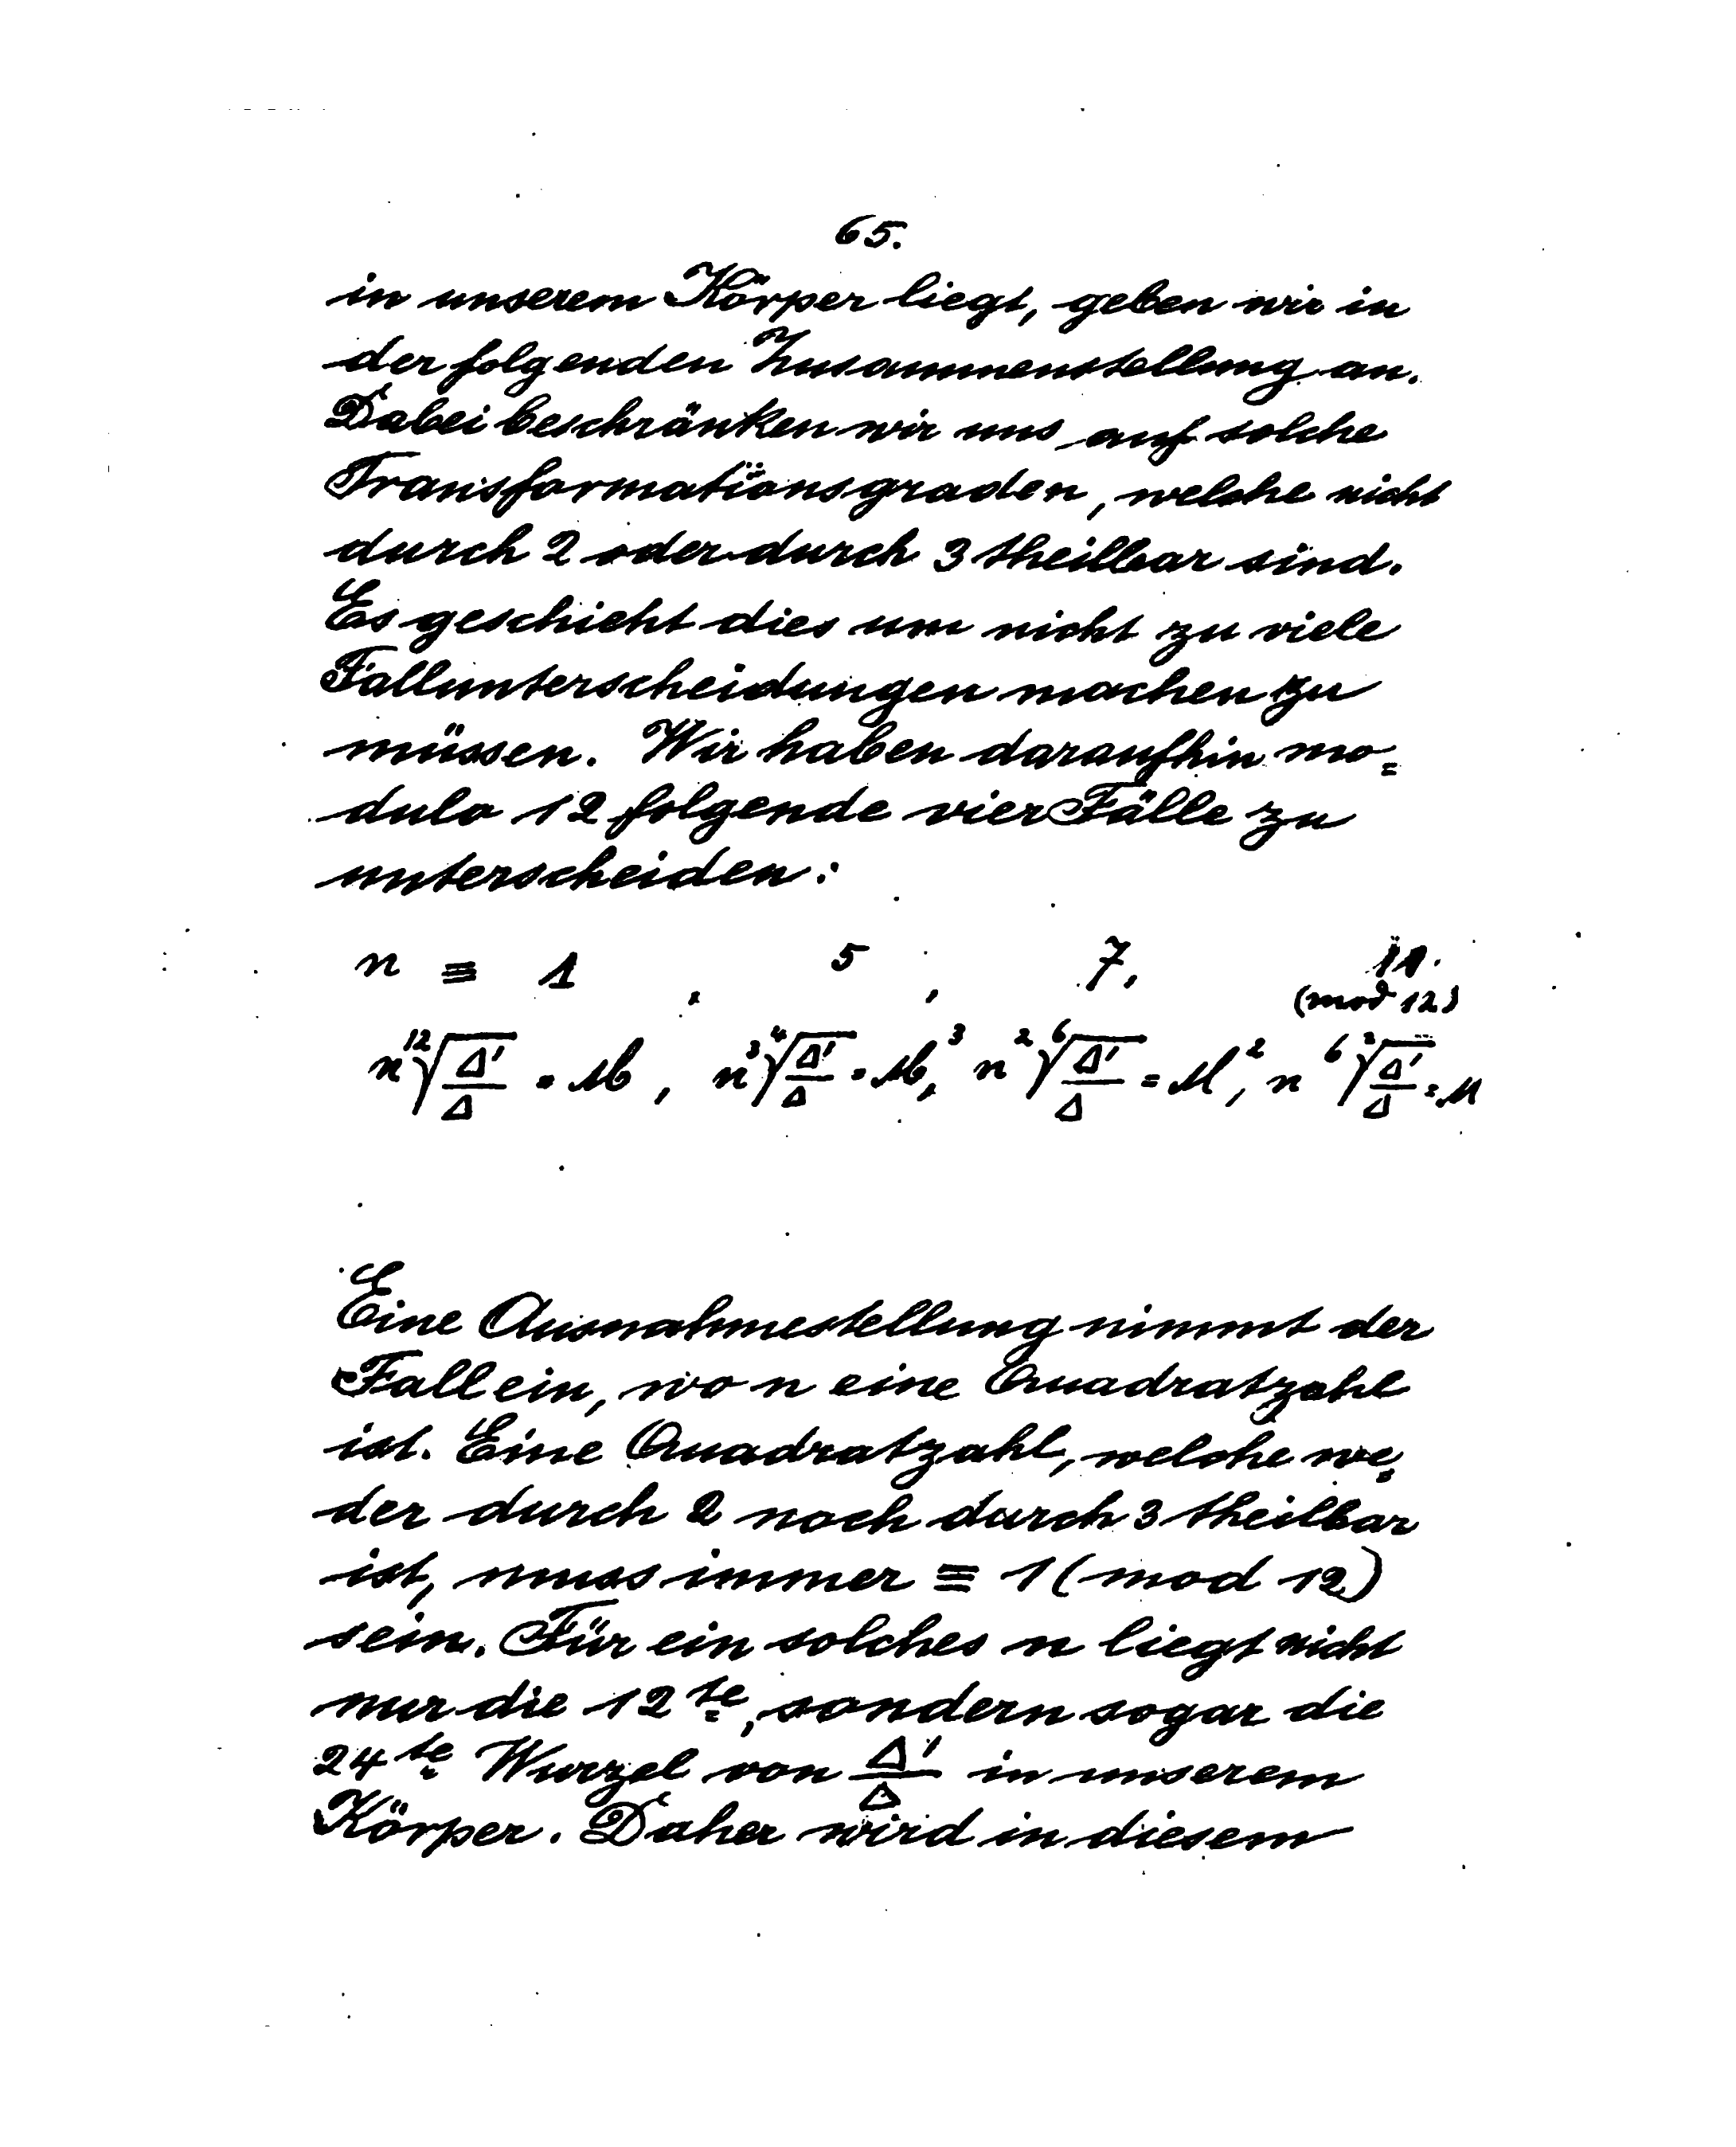 65.
in unserem Körper liegt, geben wir in
der folgenden Zusammenstellung an.
Dabei beschränken wir uns auf solche
Transformationsgraden, welche nicht
durch 2 oder durch 3 theilbar sind.
Es geschieht dies um nicht zu viele
Fallunterscheidungen machen zu
müssen. Wir haben daraufhin mo=
dulo 12 folgende vier Fälle zu
unterscheiden:
n ≡ 1 , 5 , 7, 11.
(mod 12)
n \sqrt[12]{\frac{Δ'}{Δ}} = M, n^3 \sqrt[4]{\frac{Δ'}{Δ}} = M^3, n^2 \sqrt[6]{\frac{Δ'}{Δ}} = M^2, n^6 \sqrt[2]{\frac{Δ'}{Δ}} = M
Eine Ausnahmestellung nimmt der
Fall ein, wo n eine Quadratzahl
ist. Eine Quadratzahl, welche we=
der durch 2 noch durch 3 theilbar
ist, muss immer ≡ 1 (mod 12)
sein. Für ein solches n liegt nicht
nur die 12te, sondern sogar die
24te Wurzel von \frac{Δ'}{Δ} in unserem
Körper. Daher wird in diesem